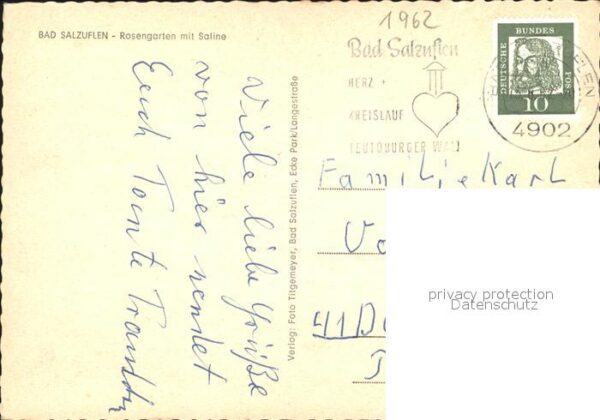 BAD SALZUFLEN - Rosengarten mit Saline
Viele liebe Grüße
von hier sendet
Euch Tante
Verlag: Foto Titgemeyer, Bad Salzuflen, Ecke Park/Langestraße
1962
Bad Salzuflen
HERZ +
KREISLAUF
TEUTOBURGER WALD
DEUTSCHE BUNDESPOST
10
4902
Familie Karl
41
privacy protection
Datenschutz